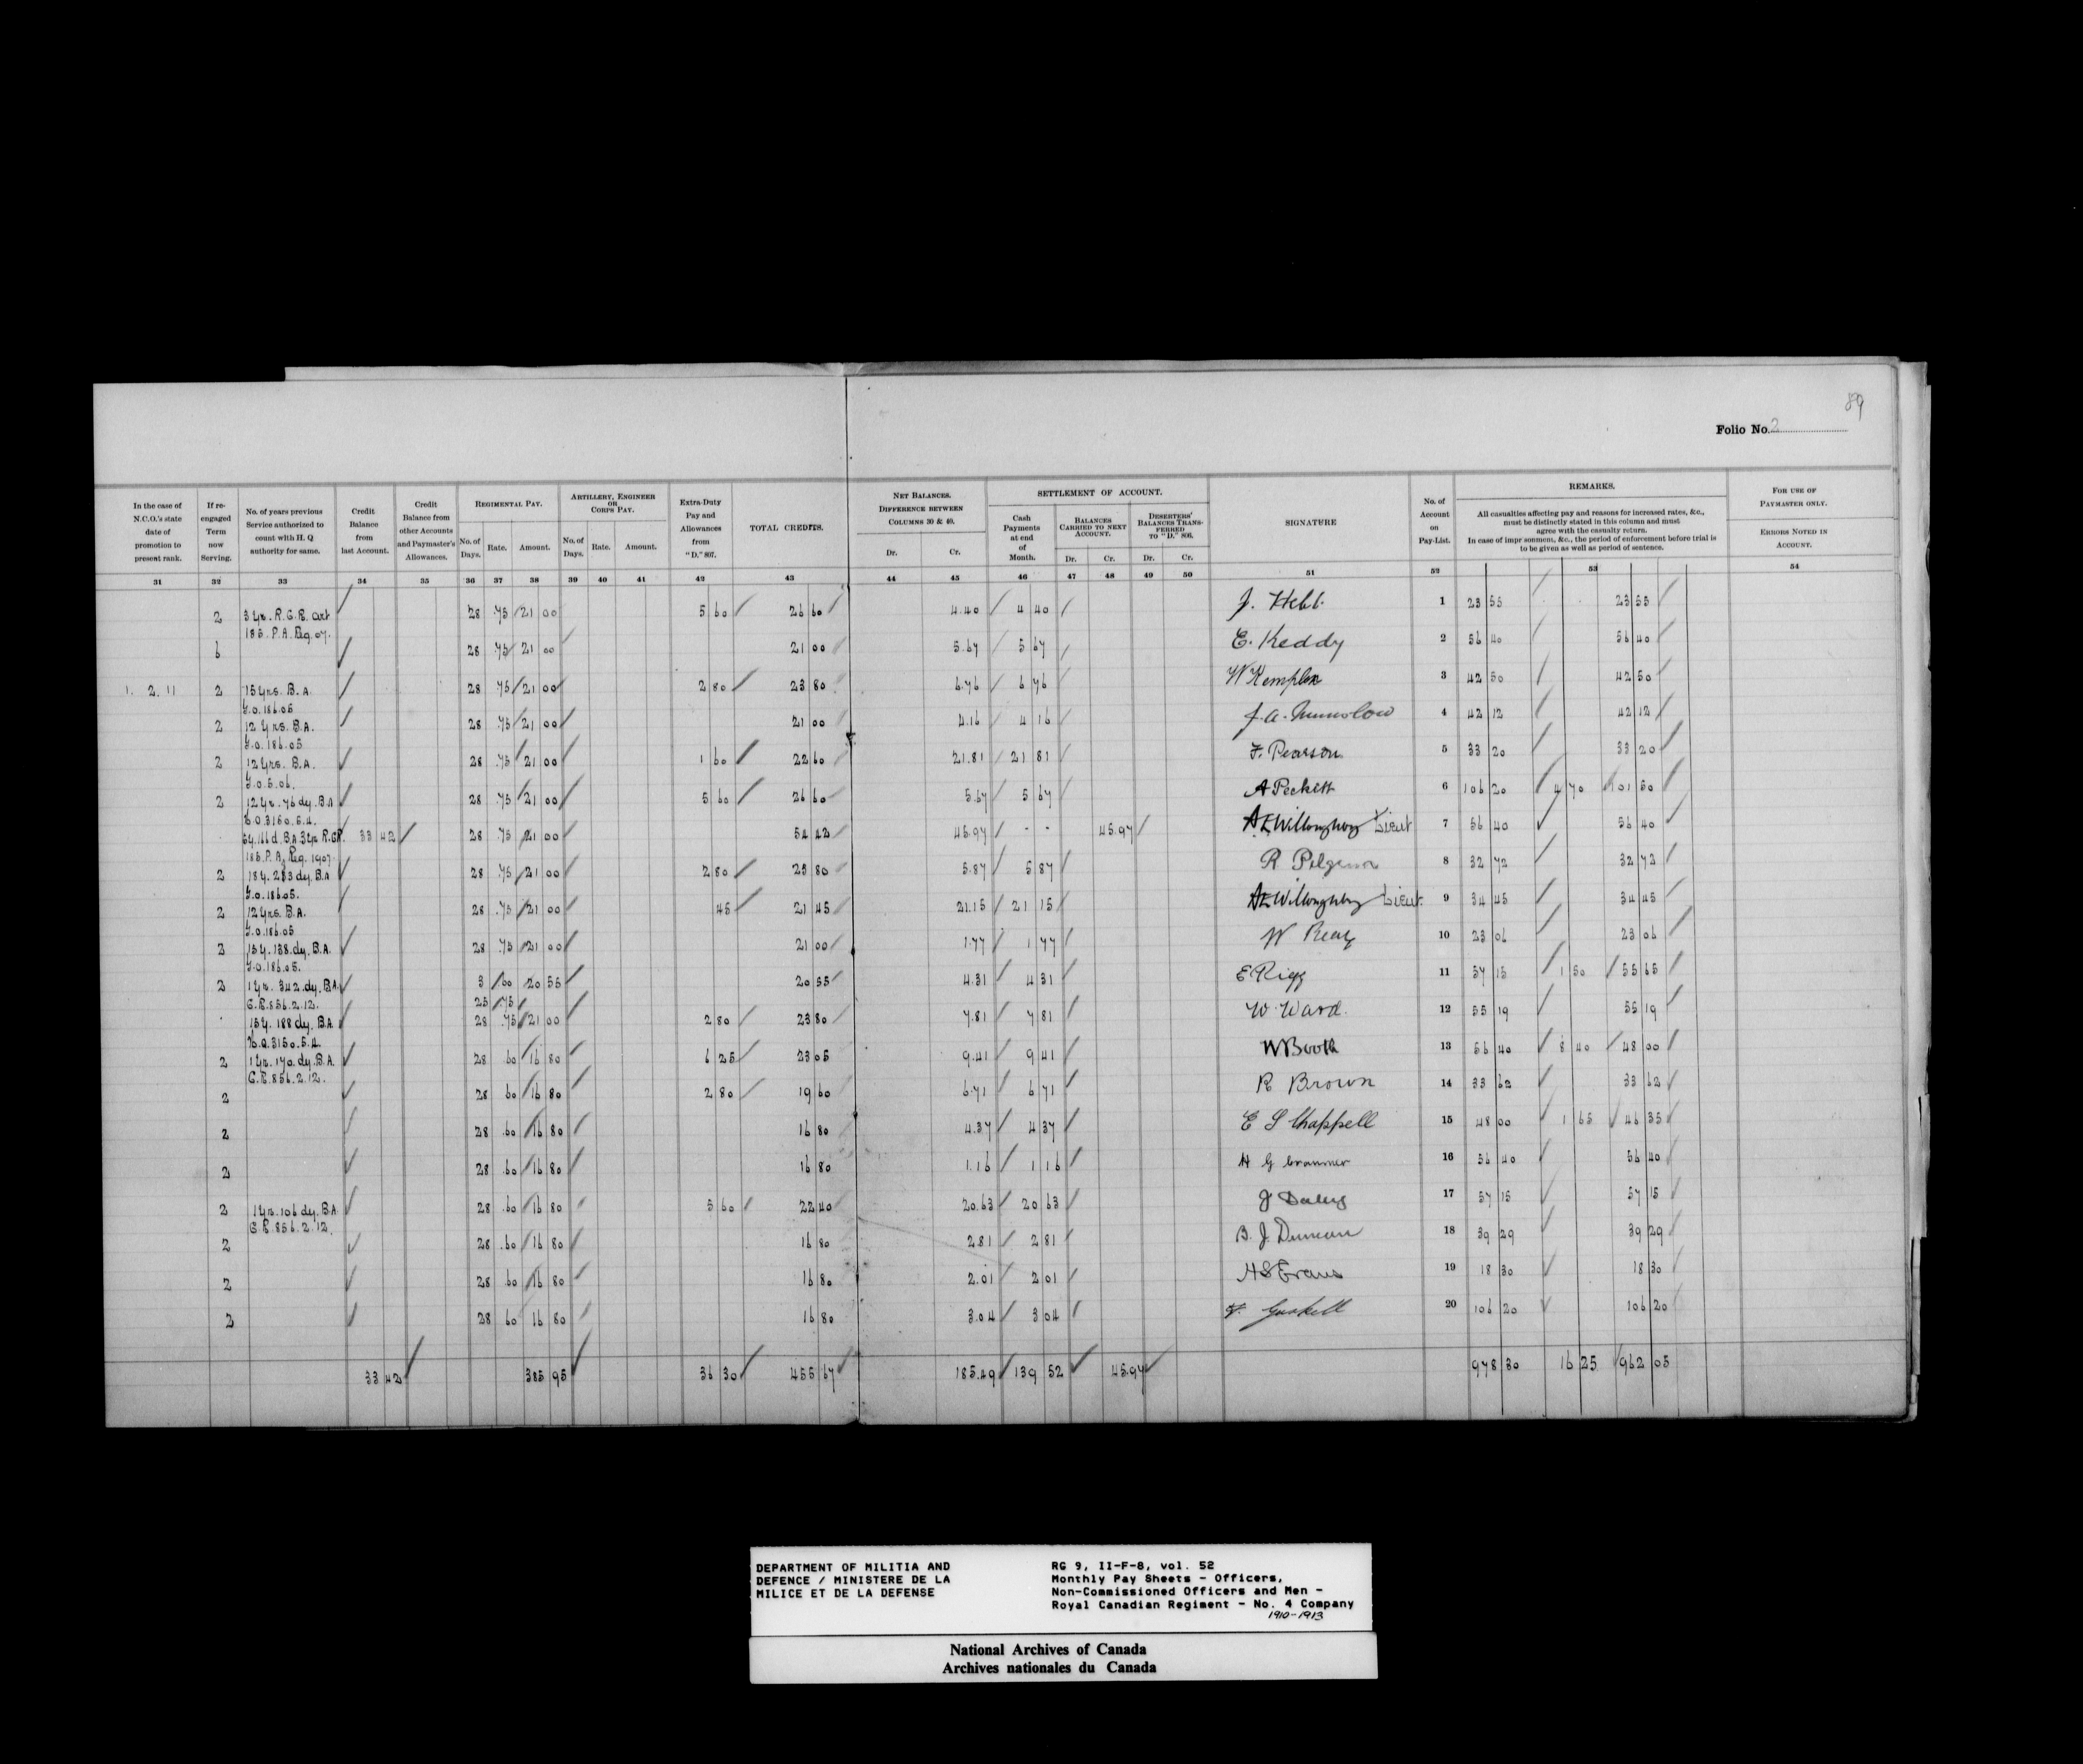 89
Folio No. 2
In the case of N.C.O.'s state date of promotion to present rank.
If re-engaged Term now Serving.
No. of years previous Service authorized to count with H. Q authority for same.
Credit Balance from last Account.
Credit Balance from other Accounts and Paymaster's Allowances.
REGIMENTAL PAY.
No. of Days. Rate. Amount.
ARTILLERY, ENGINEER OR CORPS PAY.
No. of Days. Rate. Amount.
Extra-Duty Pay and Allowances from "D." 807.
TOTAL CREDITS.
NET BALANCES.
DIFFERENCE BETWEEN COLUMNS 30 & 40.
Dr. Cr.
SETTLEMENT OF ACCOUNT.
Cash Payments at end of Month.
BALANCES CARRIED TO NEXT ACCOUNT.
Dr. Cr.
DESERTERS' BALANCES TRANSFERRED TO "D." 808.
Dr. Cr.
SIGNATURE
No. of Account on Pay-List.
REMARKS.
All casualties affecting pay and reasons for increased rates, &c.,
must be distinctly stated in this column and must
agree with the casualty return.
In case of impr sonment, &c., the period of enforcement before trial is
to be given as well as period of sentence.
FOR USE OF PAYMASTER ONLY.
ERRORS NOTED IN ACCOUNT.
31 32 33 34 35 36 37 38 39 40 41 42 43 44 45 46 47 48 49 50 51 52 53 54
2 3 yr. R.G.R. art 28 .75 21 00 5 60 26 60 4.40 4 40 J. Hebb. 1 23 55 23 55
185. P.A. Reg. 07.
6 28 .75 21 00 21 00 5.67 5 67 E. Keddy 2 56 40 56 40
1. 2. 11 2 15 yrs. B.A. 28 .75 21 00 2 80 23 80 6.76 6 76 W Kemplen 3 42 50 42 50
G.O. 186.05
2 12 yrs. B.A. 28 .75 21 00 21 00 4.16 4 16 J.A. 4 42 12 42 12
G.O. 186.05
2 12 yrs. B.A. 28 .75 21 00 1 60 22 60 21.81 21 81 F. Pearson 5 33 20 33 20
G.O. 5.06.
2 12 yr. 76 dy. B.A 28 .75 21 00 5 60 26 60 5.67 5 67 A Peckett 6 106 20 4 70 101 50
H.Q. 3150.5.4.
6y. 166 d. B.A. 3 yr R.G.R. 33 42 28 .75 21 00 54 42 45.97 - - 45.97 A E Willoughby Lieut 7 56 40 56 40
185. P.A. Reg. 1907.
2 18 y. 283 dy. B.A 28 .75 21 00 2 80 23 80 5.87 5 87 R Pilgrim 8 32 72 32 72
G.O. 186.05.
2 12 yrs. B.A. 28 .75 21 00 45 21 45 21.15 21 15 A E Willoughby Lieut. 9 34 45 34 45
G.O. 186.05
2 15 y. 138. dy. B.A. 28 .75 21 00 21 00 1.77 1 77 W Reay 10 23 06 23 06
G.O. 186.05.
2 1 yr. 342. dy. B.A. 3 .60 20 55 20 55 4.31 4 31 E Rigg 11 57 15 1 50 55 65
C.R. 856.2.12. 25 .75
15 y. 188 dy. B.A. 28 .75 21 00 2 80 23 80 7.81 7 81 W. Ward. 12 55 19 55 19
H.Q. 3150.5.4.
2 1 yr. 170. dy. B.A. 28 .60 16 80 6 25 23 05 9.41 9 41 W Booth 13 56 40 8 40 48 00
C.R. 856.2.12.
2 28 .60 16 80 2 80 19 60 6.71 6 71 R Brown 14 33 62 33 62
2 28 .60 16 80 16 80 4.37 4 37 E S Chappell 15 48 00 1 65 46 35
2 28 .60 16 80 16 80 1.16 1 16 H G Cranmer 16 56 40 56 40
2 1 yr. 106 dy. B.A 28 .60 16 80 5 60 22 40 20.63 20 63 J Daley 17 57 15 57 15
C.R. 856.2.12.
2 28 .60 16 80 16 80 2.81 2 81 B. J. Duncan 18 39 29 39 29
2 28 .60 16 80 16 80 2.01 2 01 H S Evans 19 18 30 18 30
2 28 60 16 80 16 80 3.04 3 04 F. Gaskell 20 106 20 106 20
33 42 385 95 36 30 455 67 185.49 139 52 45.97 978 30 16 25 962 05
DEPARTMENT OF MILITIA AND
DEFENCE / MINISTERE DE LA
MILICE ET DE LA DEFENSE
RG 9, II-F-8, vol. 52
Monthly Pay Sheets - Officers,
Non-Commissioned Officers and Men -
Royal Canadian Regiment - No. 4 Company
1910-1913
National Archives of Canada
Archives nationales du Canada